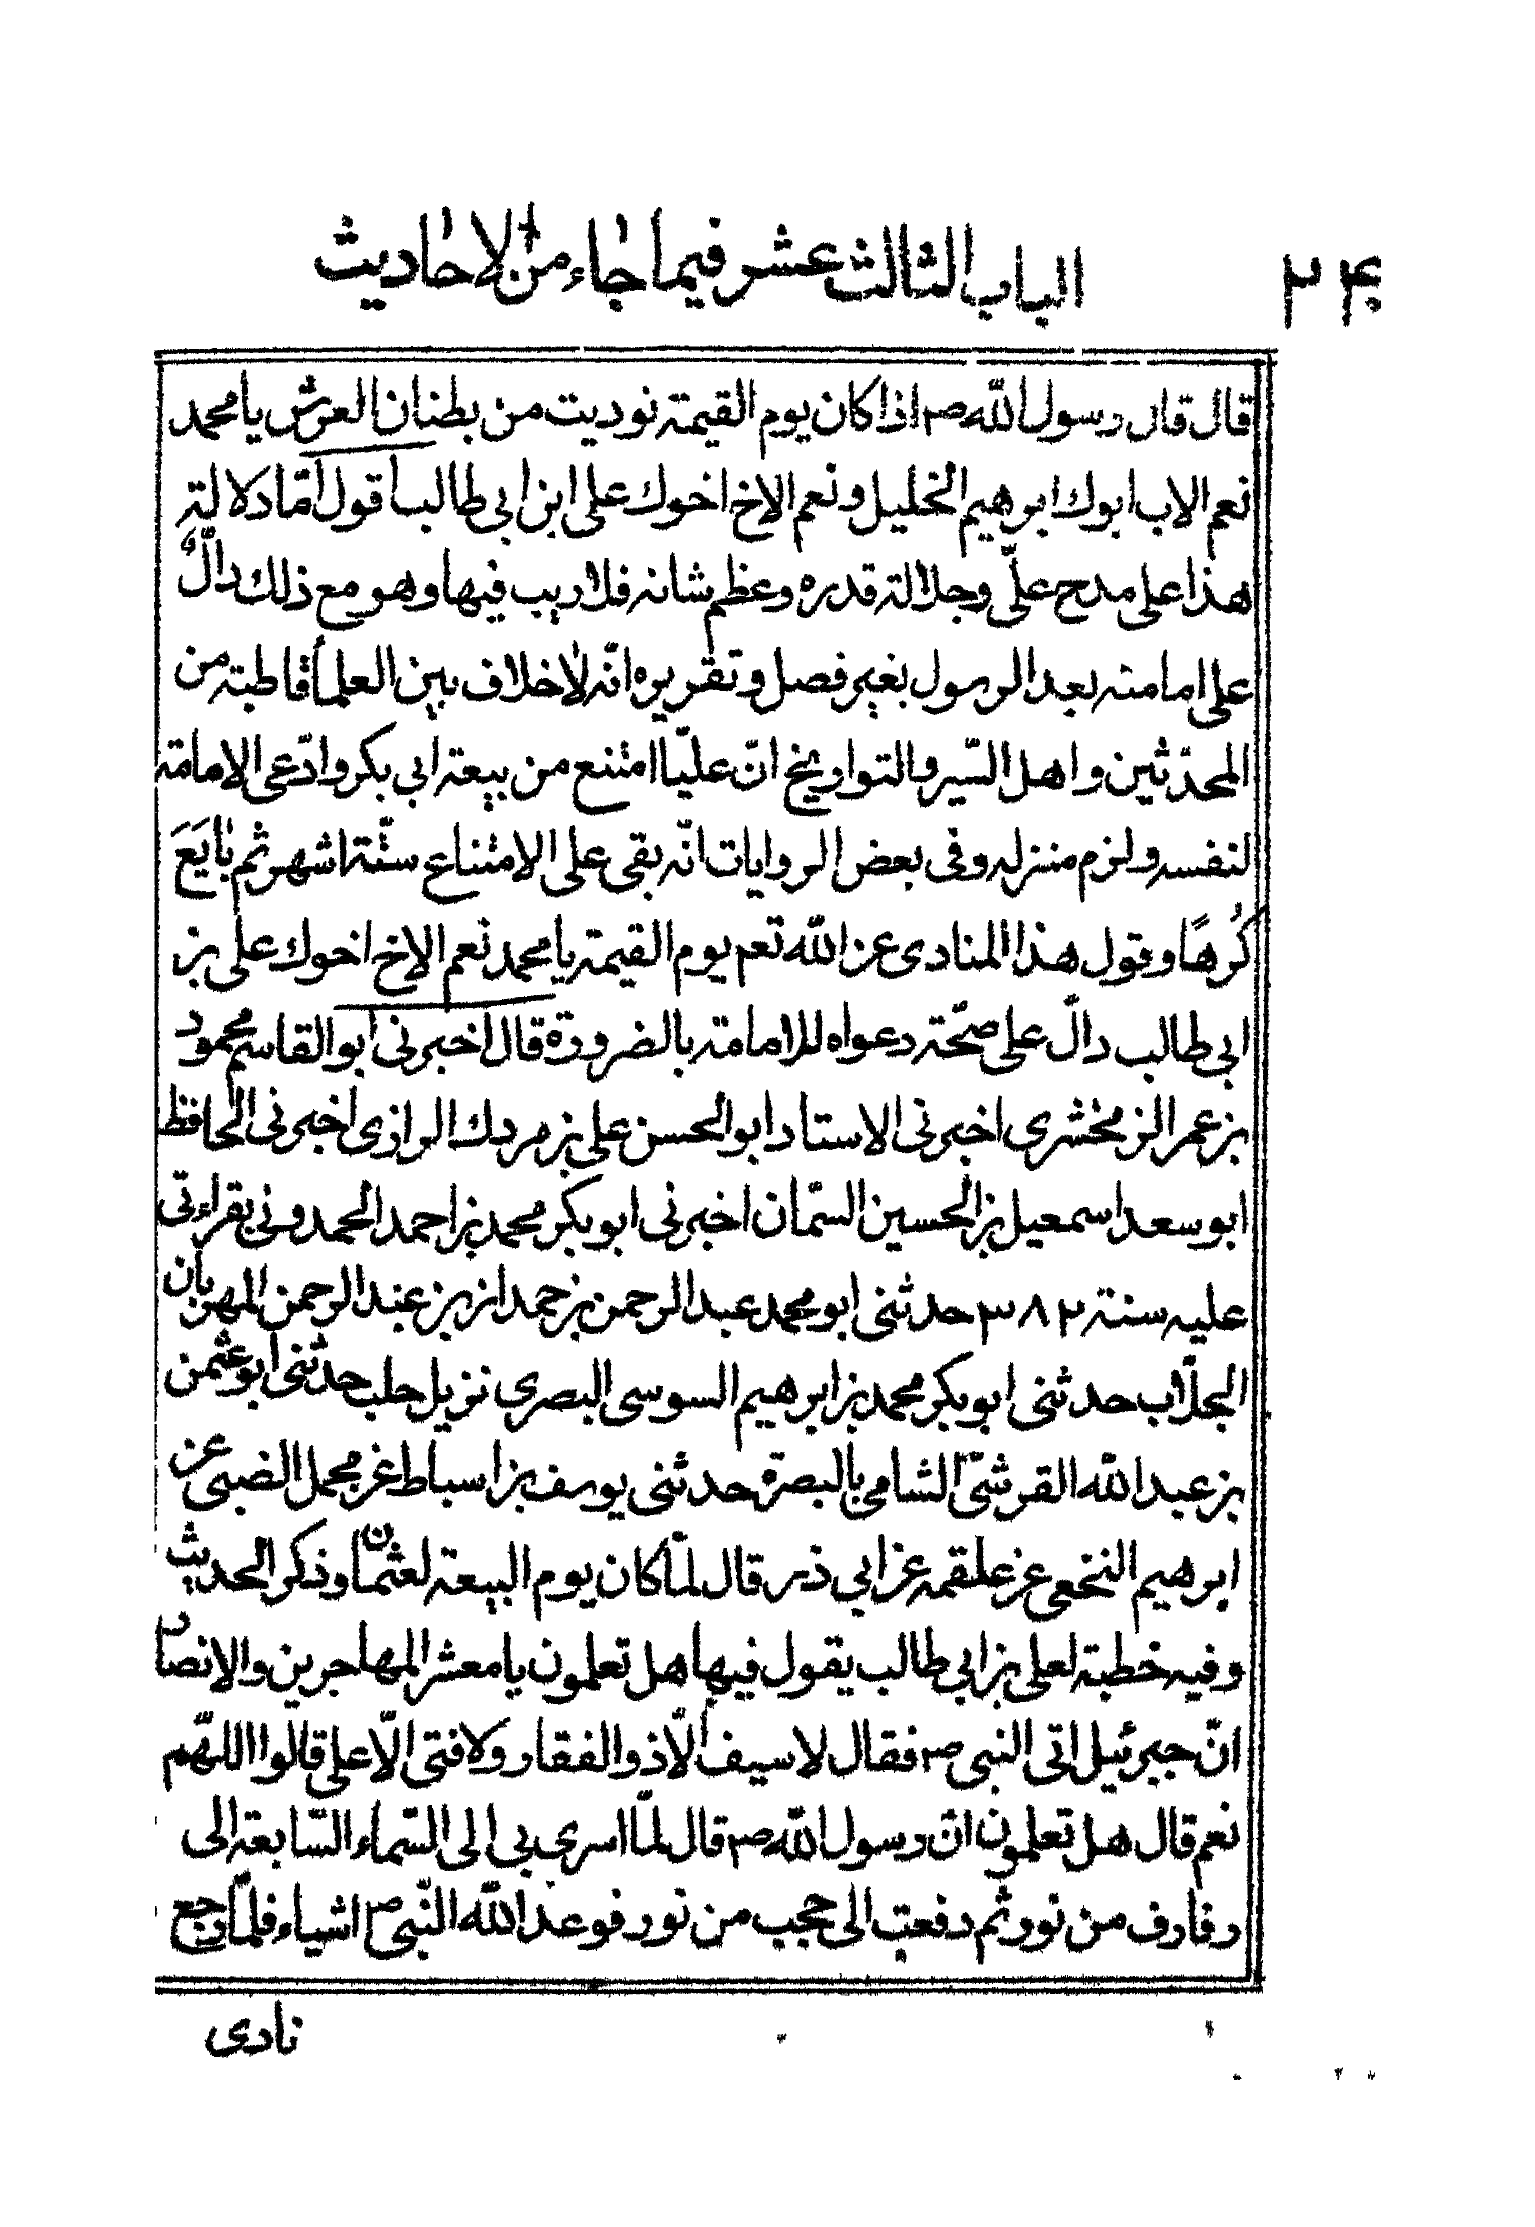 ٢۴
الباب الثالث عشر فيما جاء من الاحاديث
قال قال رسول الله ص اذا كان يوم القيمة نوديت من بطنان العرش يا محمد
نعم الاب ابوك ابرهيم الخليل و نعم الاخ اخوك على ابن ابي طالب اقول امّا دلالة
هذا على مدح علىّ وجلالة قدره وعظم شانه فلا ريب فيها وهو مع ذلك دالٌّ
على امامته بعد الرسول بغير فصل و تقريره انّه لا خلاف بين العلماء قاطبة من
المحدّثين و اهل السّير و التواريخ انّ عليّا امتنع من بيعة ابي بكر وادّعى الامامة
لنفسه و لزم منزله وفى بعض الروايات انّه بقى على الامتناع ستّة اشهر ثم بايَعَ
كُرهًا و قول هذا المنادى عن الله تعم يوم القيمة يا محمد نعم الاخ اخوك على بن
ابي طالب دالّ على صحّة دعواه للامامة بالضرورة قال اخبرني ابو القاسم محمود
بن عمر الزمخشرى اخبرنى الاستاد ابو الحسن على بن مردك الرازى اخبرنى الحافظ
ابو سعد اسمعيل بن الحسين السّمان اخبرنى ابو بكر محمد بن احمد المحمدونى بقراءتى
عليه سنة ٣٨٢ حدثنى ابو محمد عبد الرحمن بن حمدان بن عبد الرحمن المهربان
الجلّاب حدثنى ابو بكر محمد بن ابرهيم السوسى البصرى نزيل حلب حدثنى ابو عثمن
بن عبد الله القرشىّ الشامى بالبصرة حدثنى يوسف بن اسباط عن محمل الضبى عن
ابرهيم النخعى عن علقمه عن ابي ذر قال لمّا كان يوم البيعة لعثمان وذكر الحديث
وفيه خطبة لعلى بن ابي طالب يقول فيها هل تعلمون يا معشر المهاجرين والانصار
انّ جبرئيل اتى النبى ص فقال لا سيف الّا ذو الفقار و لا فتى الّا على قالوا اللهم
نعم قال هل تعلمون انّ رسول الله ص قال لمّا اسرى بي الى السّماء السّابعة الى
رفارف من نور ثم رفعت الى حجب من نور فوعد الله النّبى ص اشياء فلمّا رجع
نادى